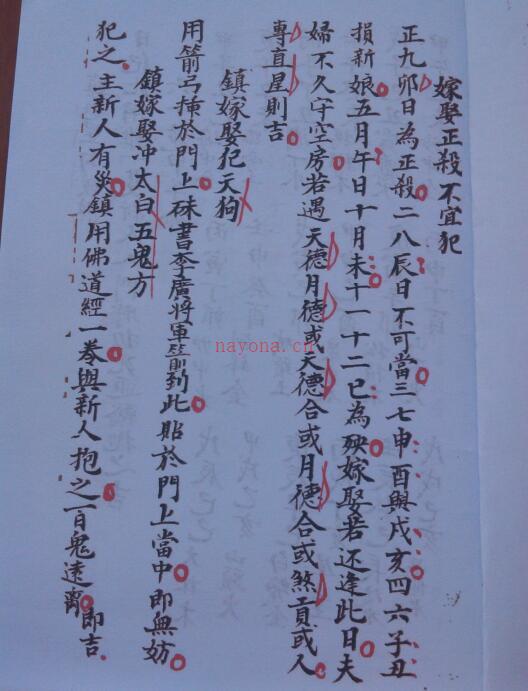 嫁娶正殺不宜犯
正九卯日為正殺二八辰日不可當三七申酉與戌亥四六子丑
損新娘五月午日十月未十一十二巳為殃嫁娶若还逢此日夫
婦不久守空房若遇天德月德或天德合或月德合或煞貢或人
專直星則吉
鎮嫁娶犯天狗
用箭弓揷於門上硃書李廣將軍箭到此貼於門上當中即無妨
鎮嫁娶冲太白五鬼方
犯之主新人有災鎮用佛道經一卷與新人抱之百鬼遠离即吉
nayona.cn